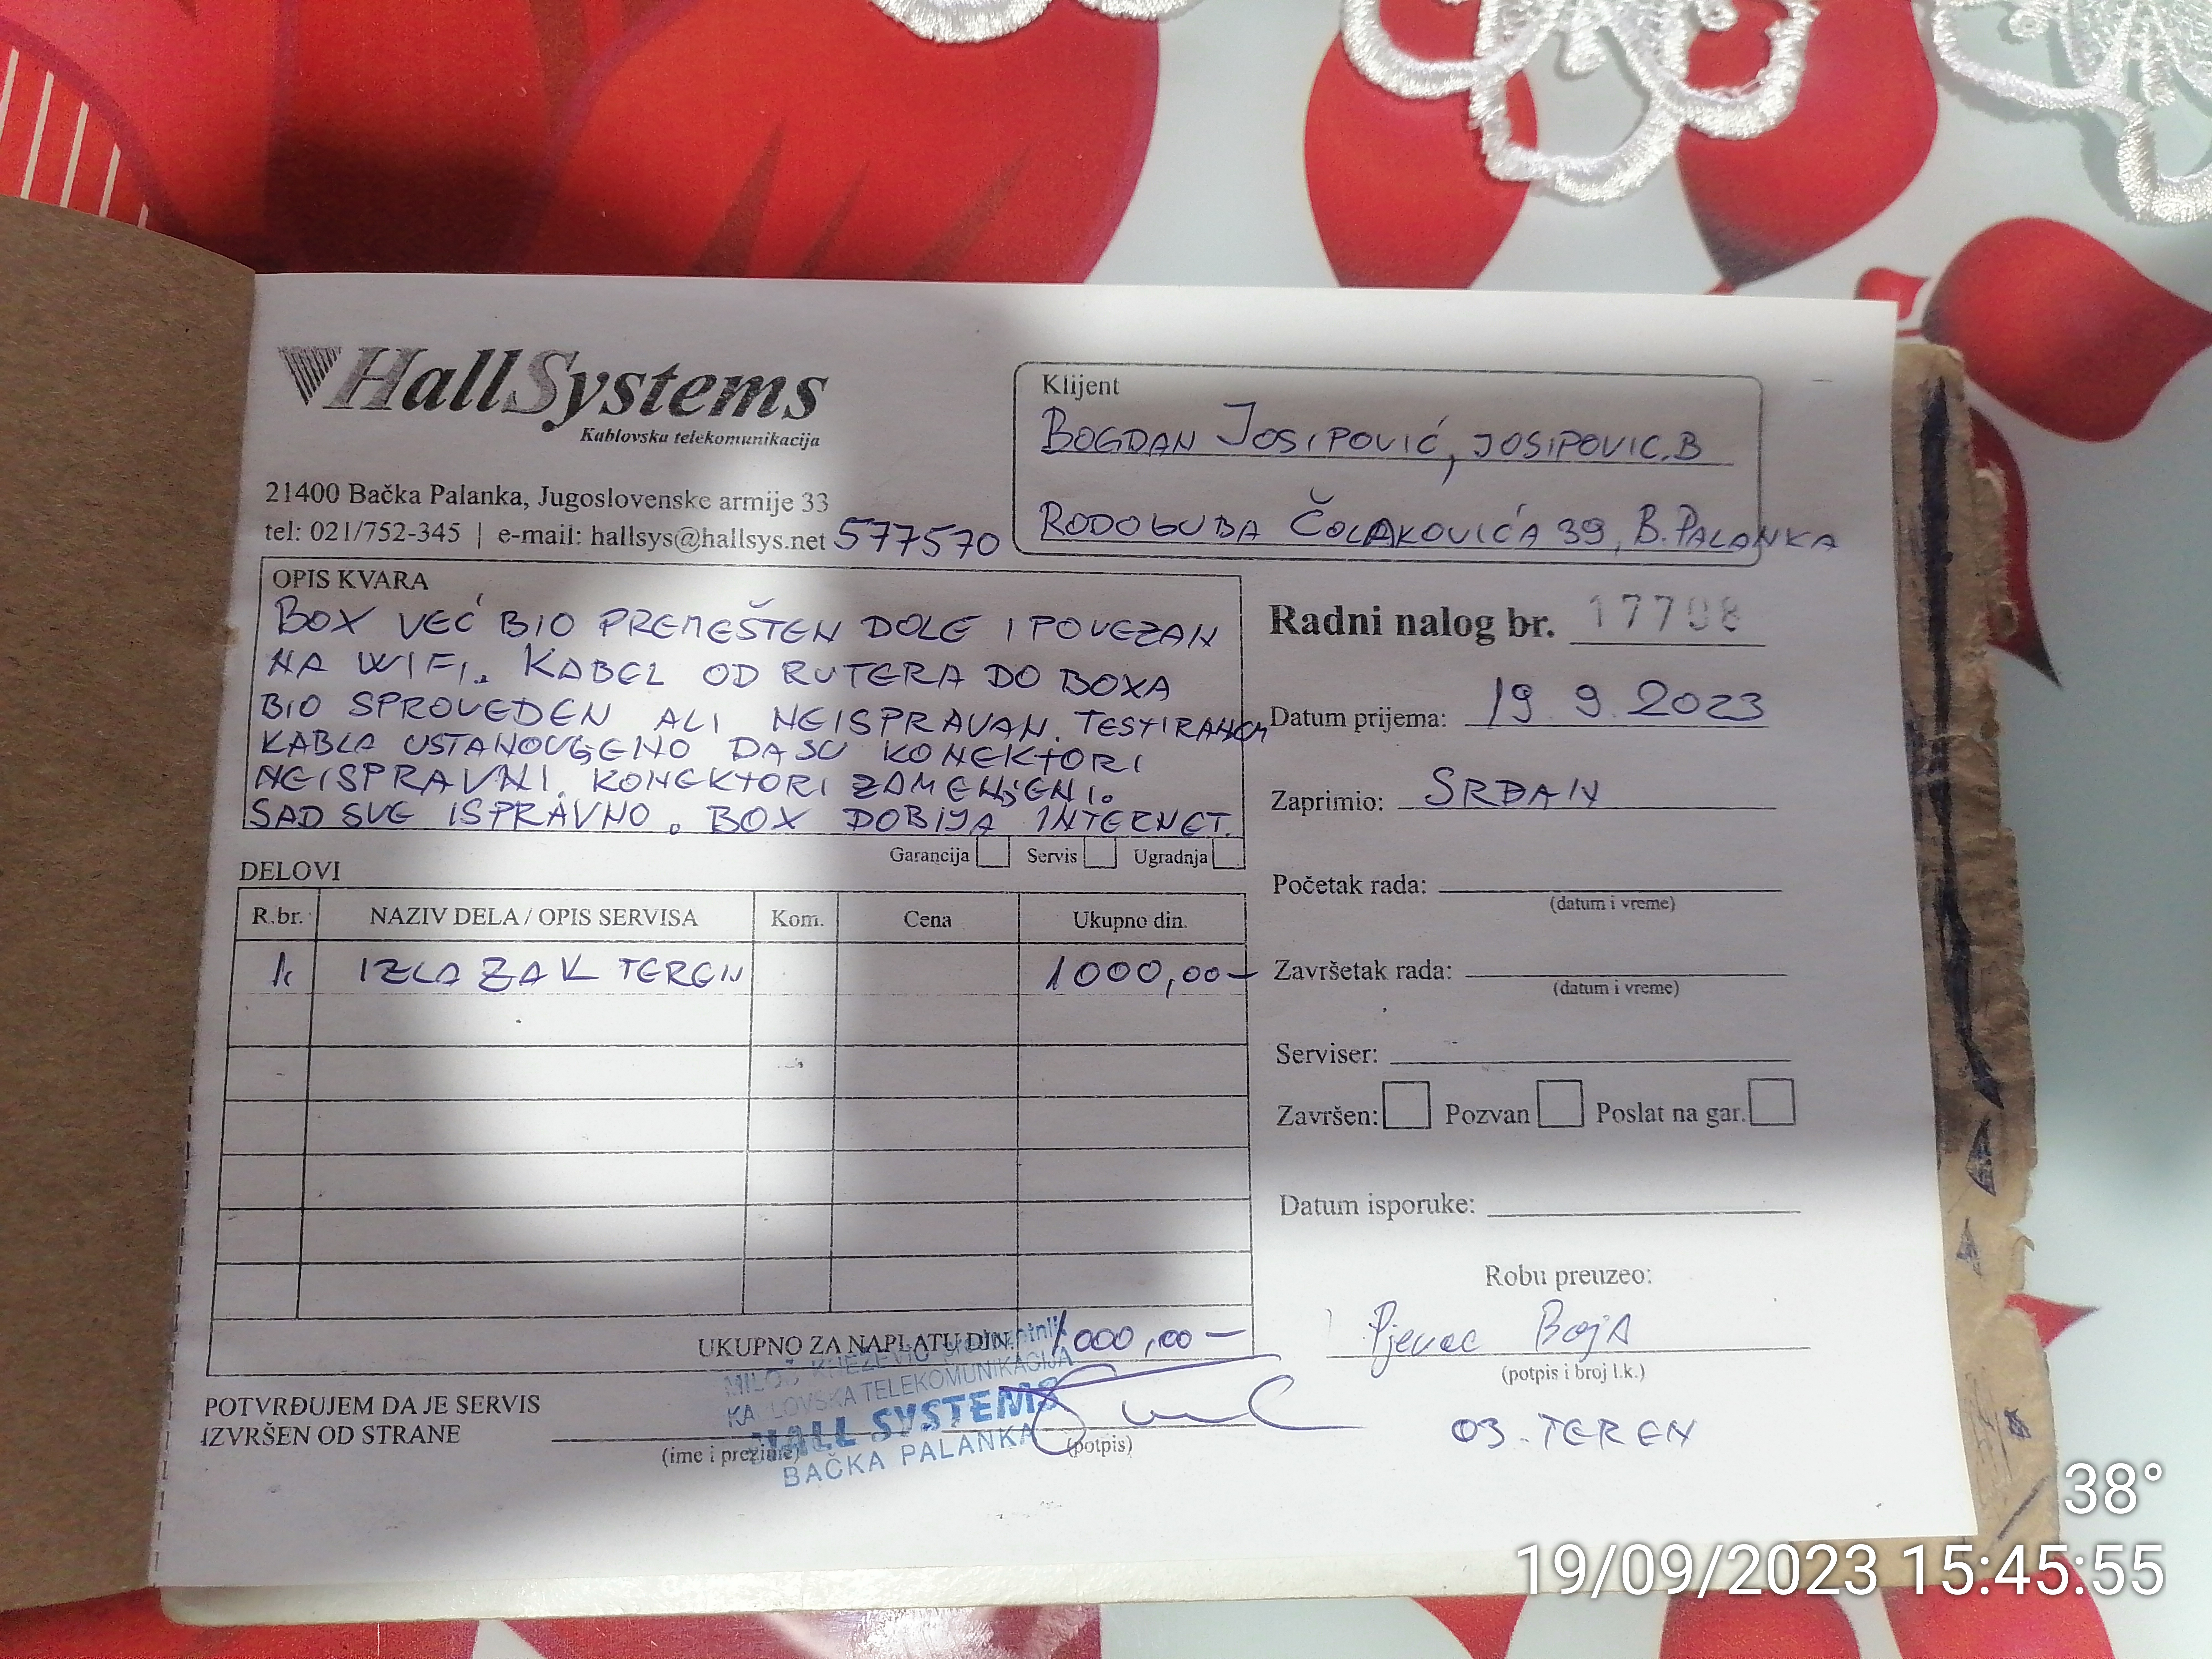 HallSystems
Kablovska telekomunikacija
21400 Bačka Palanka, Jugoslovenske armije 33
tel: 021/752-345 | e-mail: hallsys@hallsys.net 577570
Klijent
BOGDAN JOSIPOVIĆ, JOSIPOVIC.B
RODOLJUBA ČOLAKOVIĆA 39, B.PALANKA
OPIS KVARA
BOX VEĆ BIO PREMEŠTEN DOLE I POVEZAN
NA WIFI. KABEL OD RUTERA DO BOXA
BIO SPROVEDEN ALI NEISPRAVAN. TESTIRANOM
KABLA USTANOVLJENO DA SU KONEKTORI
NEISPRAVNI. KONEKTORI ZAMENJENI.
SAD SVE ISPRAVNO. BOX DOBIJA INTERNET.
Garancija Servis Ugradnja
Radni nalog br. 17708
Datum prijema: 19 9. 2023
Zaprimio: SRĐAN
Početak rada:
(datum i vreme)
Završetak rada:
(datum i vreme)
Serviser:
Završen: Pozvan Poslat na gar.
Datum isporuke:
Robu preuzeo:
Pjevac Boja
(potpis i broj l.k.)
03. TEREN
DELOVI
R.br. NAZIV DELA / OPIS SERVISA Kom. Cena Ukupno din.
1. IZLAZAK TEREN 1000,00-
UKUPNO ZA NAPLATU DIN. 1000,00-
POTVRĐUJEM DA JE SERVIS
IZVRŠEN OD STRANE
(ime i prezime) (potpis)
MILOŠ KNEŽEVIĆ preduzetnik
KABLOVSKA TELEKOMUNIKACIJA
HALL SYSTEMS
BAČKA PALANKA
38°
19/09/2023 15:45:55